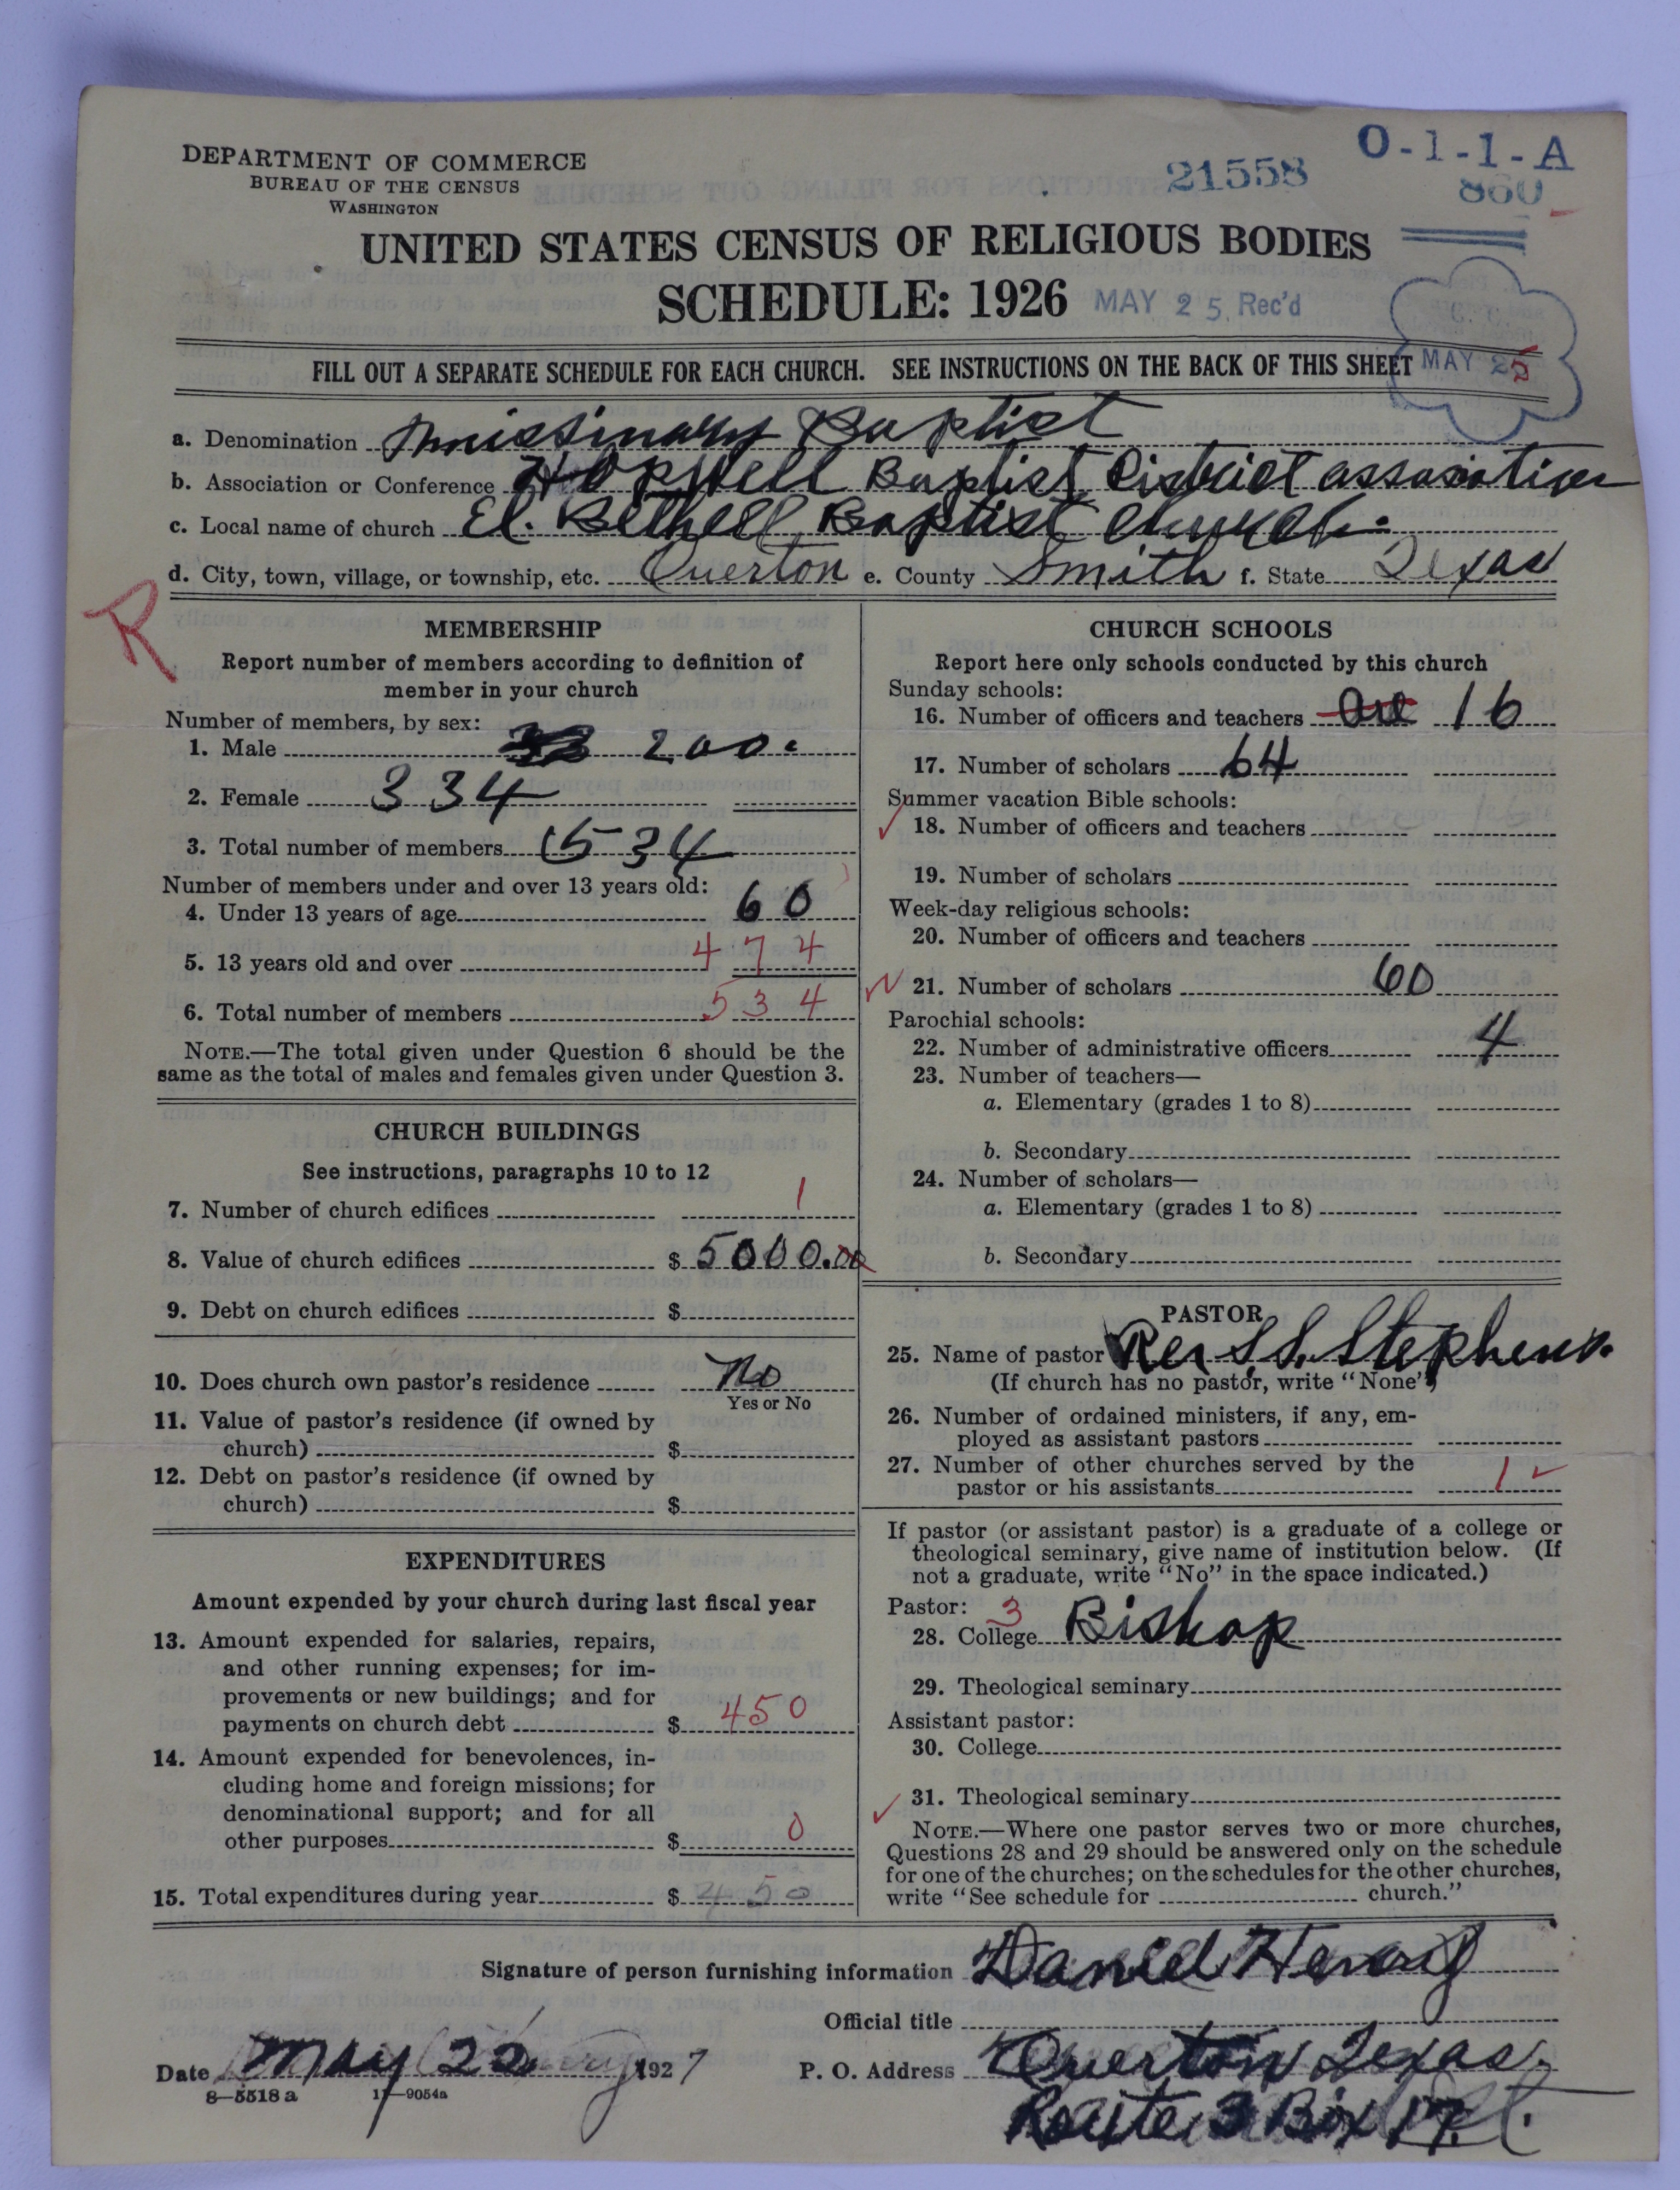 DEPARTMENT OF COMMERCE
BUREAU OF THE CENSUS
WASHINGTON
21558
O-1-1-A
860
UNITED STATES CENSUS OF RELIGIOUS BODIES
SCHEDULE: 1926
MAY 25 Rec'd
FILL OUT A SEPARATE SCHEDULE FOR EACH CHURCH. SEE INSTRUCTIONS ON THE BACK OF THIS SHEET
MAY 25
a. Denomination Missinary Baptist
b. Association or Conference Hopwell Baptist District assosiation
c. Local name of church El. Bethell Baptist Church.
d. City, town, village, or township, etc. Overton e. County Smith f. State Texas
R
MEMBERSHIP
Report number of members according to definition of
member in your church
Number of members, by sex:
1. Male 200.
2. Female 334
3. Total number of members 534
Number of members under and over 13 years old:
4. Under 13 years of age 60
5. 13 years old and over 474
6. Total number of members 534
NOTE.—The total given under Question 6 should be the
same as the total of males and females given under Question 3.
CHURCH BUILDINGS
See instructions, paragraphs 10 to 12
7. Number of church edifices 1
8. Value of church edifices $ 5000.00
9. Debt on church edifices $
10. Does church own pastor's residence No
Yes or No
11. Value of pastor's residence (if owned by
church) $
12. Debt on pastor's residence (if owned by
church) $
EXPENDITURES
Amount expended by your church during last fiscal year
13. Amount expended for salaries, repairs,
and other running expenses; for im-
provements or new buildings; and for
payments on church debt $ 450
14. Amount expended for benevolences, in-
cluding home and foreign missions; for
denominational support; and for all
other purposes $ 0
15. Total expenditures during year $ 450
CHURCH SCHOOLS
Report here only schools conducted by this church
Sunday schools:
16. Number of officers and teachers 16
17. Number of scholars 64
Summer vacation Bible schools:
18. Number of officers and teachers
19. Number of scholars
Week-day religious schools:
20. Number of officers and teachers
21. Number of scholars 60
Parochial schools:
22. Number of administrative officers 4
23. Number of teachers—
a. Elementary (grades 1 to 8)
b. Secondary
24. Number of scholars—
a. Elementary (grades 1 to 8)
b. Secondary
PASTOR
25. Name of pastor Rev S.S. Stephens.
(If church has no pastor, write "None")
26. Number of ordained ministers, if any, em-
ployed as assistant pastors
27. Number of other churches served by the
pastor or his assistants 1
If pastor (or assistant pastor) is a graduate of a college or
theological seminary, give name of institution below. (If
not a graduate, write "No" in the space indicated.)
Pastor: 3
28. College Bishop
29. Theological seminary
Assistant pastor:
30. College
31. Theological seminary
NOTE.—Where one pastor serves two or more churches,
Questions 28 and 29 should be answered only on the schedule
for one of the churches; on the schedules for the other churches,
write "See schedule for church."
Signature of person furnishing information Daniel
Official title
Date May 22 1927
P. O. Address Overton Texas.
Route 3 Box 17
8—5518 a 11—9054a